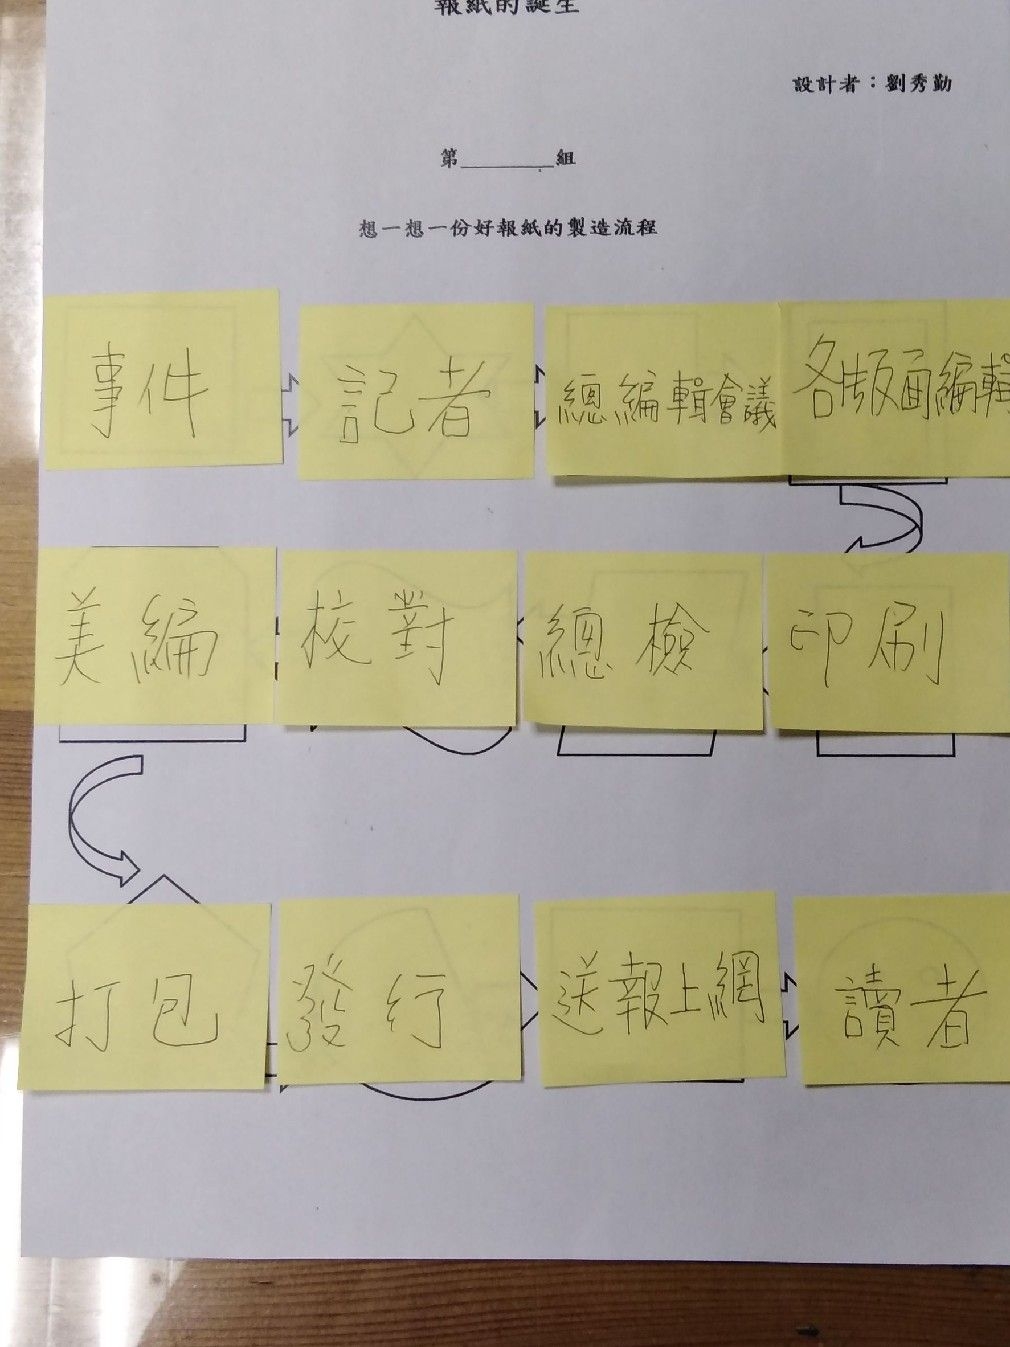 報紙的誕生
設計者：劉秀勤
第________組
想一想一份好報紙的製造流程
事件
記者
總編輯會議
各版面編輯
美編
校對
總檢
印刷
打包
發行
送報上網
讀者